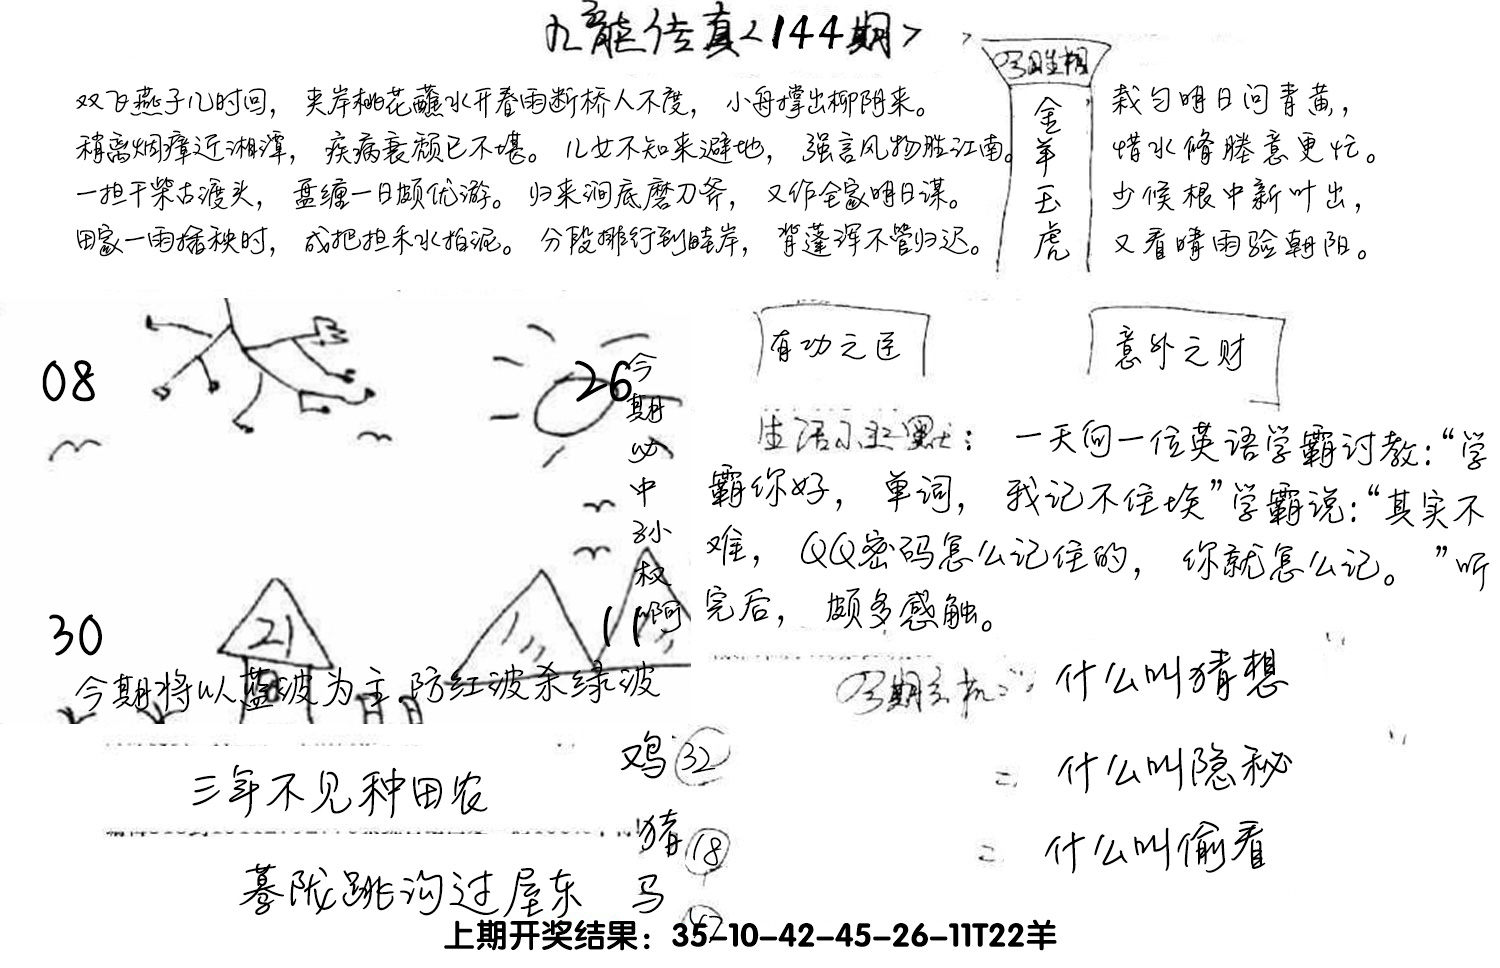 九龙传真<144期>
双飞燕子几时回，夹岸桃花蘸水开春雨断桥人不度，小舟撑出柳阴来。
稍离烟瘴近湘潭，疾病衰颓已不堪。儿女不知来避地，强言风物胜江南。
一担干柴古渡头，盘缠一日颇优游。归来涧底磨刀斧，又作全家明日谋。
田家一雨插秧时，成把担禾水拍泥。分段排行到畦岸，背蓬浑不管归迟。
金羊玉虎
栽匀明日问青黄，
惜水脩塍意更忙。
少候根中新叶出，
又看晴雨验朝阳。
08
26
今期必中孙权啊
30
21
11
今期将以蓝波为主防红波杀绿波
有功之臣
意外之财
生活小幽默：一天向一位英语学霸讨教：“学
霸你好，单词，我记不住埃”学霸说：“其实不
难，QQ密码怎么记住的，你就怎么记。”听
完后，颇多感触。
什么叫猜想
= 什么叫隐秘
= 什么叫偷看
三年不见种田农
蓦陇跳沟过屋东
鸡32
猪18
马42
上期开奖结果：35-10-42-45-26-11T22羊